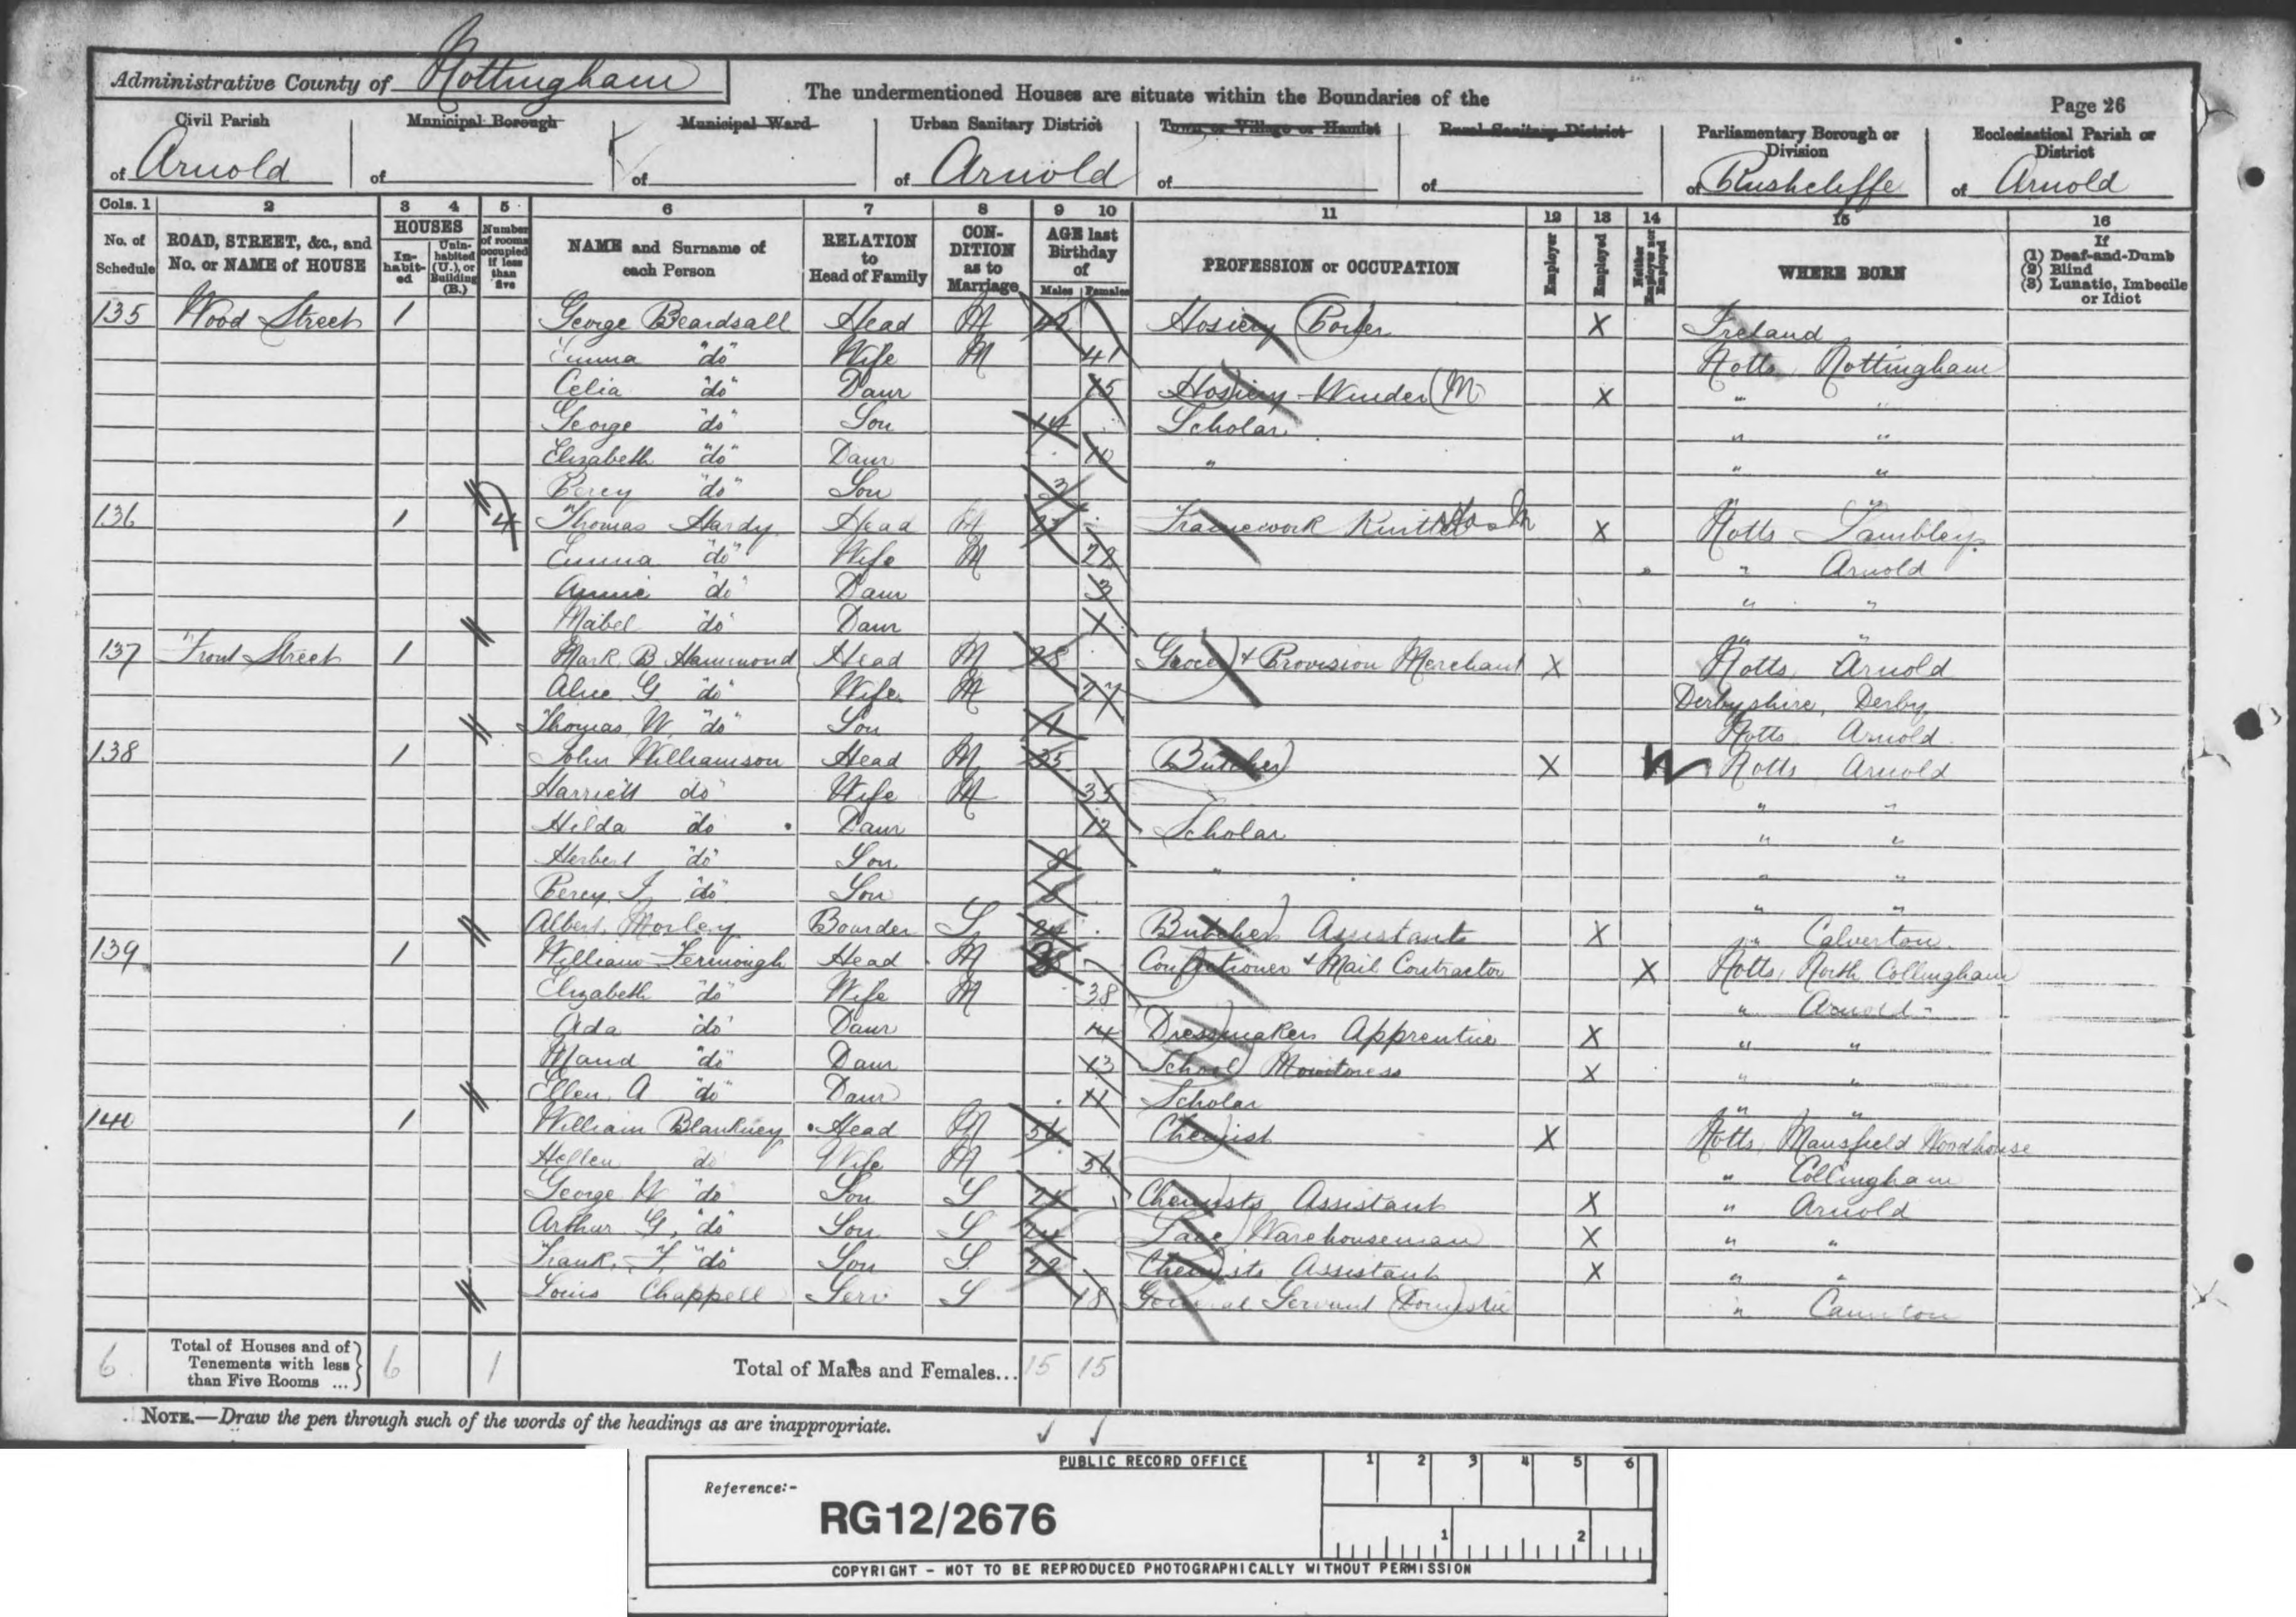 Administrative County of Nottingham
The undermentioned Houses are situate within the Boundaries of the
Page 26
Civil Parish of Arnold
Municipal Borough of
Municipal Ward of
Urban Sanitary District of Arnold
Town or Village or Hamlet of
Rural Sanitary District of
Parliamentary Borough or Division of Rushcliffe
Ecclesiastical Parish or District of Arnold
Cols. 1 2 3 4 5 6 7 8 9 10 11 12 13 14 15 16
No. of Schedule
ROAD, STREET, &c., and No. or NAME of HOUSE
HOUSES
In-habit-ed
Unin-habited (U.), or Building (B.)
Number of rooms occupied if less than five
NAME and Surname of each Person
RELATION to Head of Family
CON-DITION as to Marriage
AGE last Birthday of
Males Females
PROFESSION or OCCUPATION
Employer
Employed
Neither Employer nor Employed
WHERE BORN
If (1) Deaf-and-Dumb (2) Blind (3) Lunatic, Imbecile or Idiot
135 Wood Street 1 George Beardsall Head M 42 Hosiery Porter X Ireland
Emma "do" Wife M 41 Notts Nottingham
Celia "do" Daur 15 Hosiery Winder (M) X " "
George "do" Son 14 Scholar " "
Elizabeth "do" Daur 10 " " "
Percy "do" Son 3 " "
136 1 4 Thomas Hardy Head M Framework Knitter X Notts Lambley
Emma "do" Wife M 22 " Arnold
Annie "do" Daur 3 " "
Mabel "do" Daur 1 " "
137 Front Street 1 Mark B Hammond Head M 28 Grocer & Provision Merchant X Notts Arnold
Alice G "do" Wife M 27 Derbyshire, Derby
Thomas W. "do" Son 1 Notts Arnold
138 1 John Williamson Head M 35 Butcher X Notts Arnold
Harriett do Wife M 35 " "
Hilda do Daur 12 Scholar " "
Herbert "do" Son " " "
Percy J "do" Son " "
Albert Morley Boarder S Butchers Assistant X " Calverton
139 1 William Fernough Head M Confectioner & Mail Contractor X Notts, North Collingham
Elizabeth "do" Wife M 38 " Arnold
Ada "do" Daur 14 Dressmakers Apprentice X " "
Maud "do" Daur 13 School Monitoress X " "
Ellen A "do" Daur 11 Scholar " "
140 1 William Blankney Head M 54 Chemist X Notts, Mansfield Woodhouse
Hellen do Wife M 56 " Collingham
George W "do Son S Chemists Assistant X " Arnold
Arthur G, "do" Son S 24 Lace Warehouseman X " "
Frank. F. "do" Son S 22 Chemists Assistant X " "
Louis Chappell Serv S 18 General Servant Domestic "
6 Total of Houses and of Tenements with less than Five Rooms ... 6 1 Total of Males and Females... 15 15
NOTE.—Draw the pen through such of the words of the headings as are inappropriate.
PUBLIC RECORD OFFICE
1 2 3 4 5 6
Reference:-
RG12/2676
1 2
COPYRIGHT - NOT TO BE REPRODUCED PHOTOGRAPHICALLY WITHOUT PERMISSION